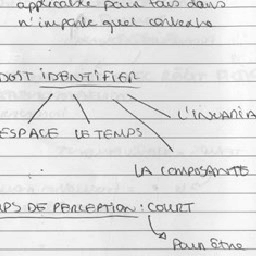 applicable pour tous dans
n'importe quel contexte
DOIT IDENTIFIER
L'INVARIA
ESPACE LE TEMPS
LA COMPOSANTE
PS DE PERCEPTION : COURT
Pour être